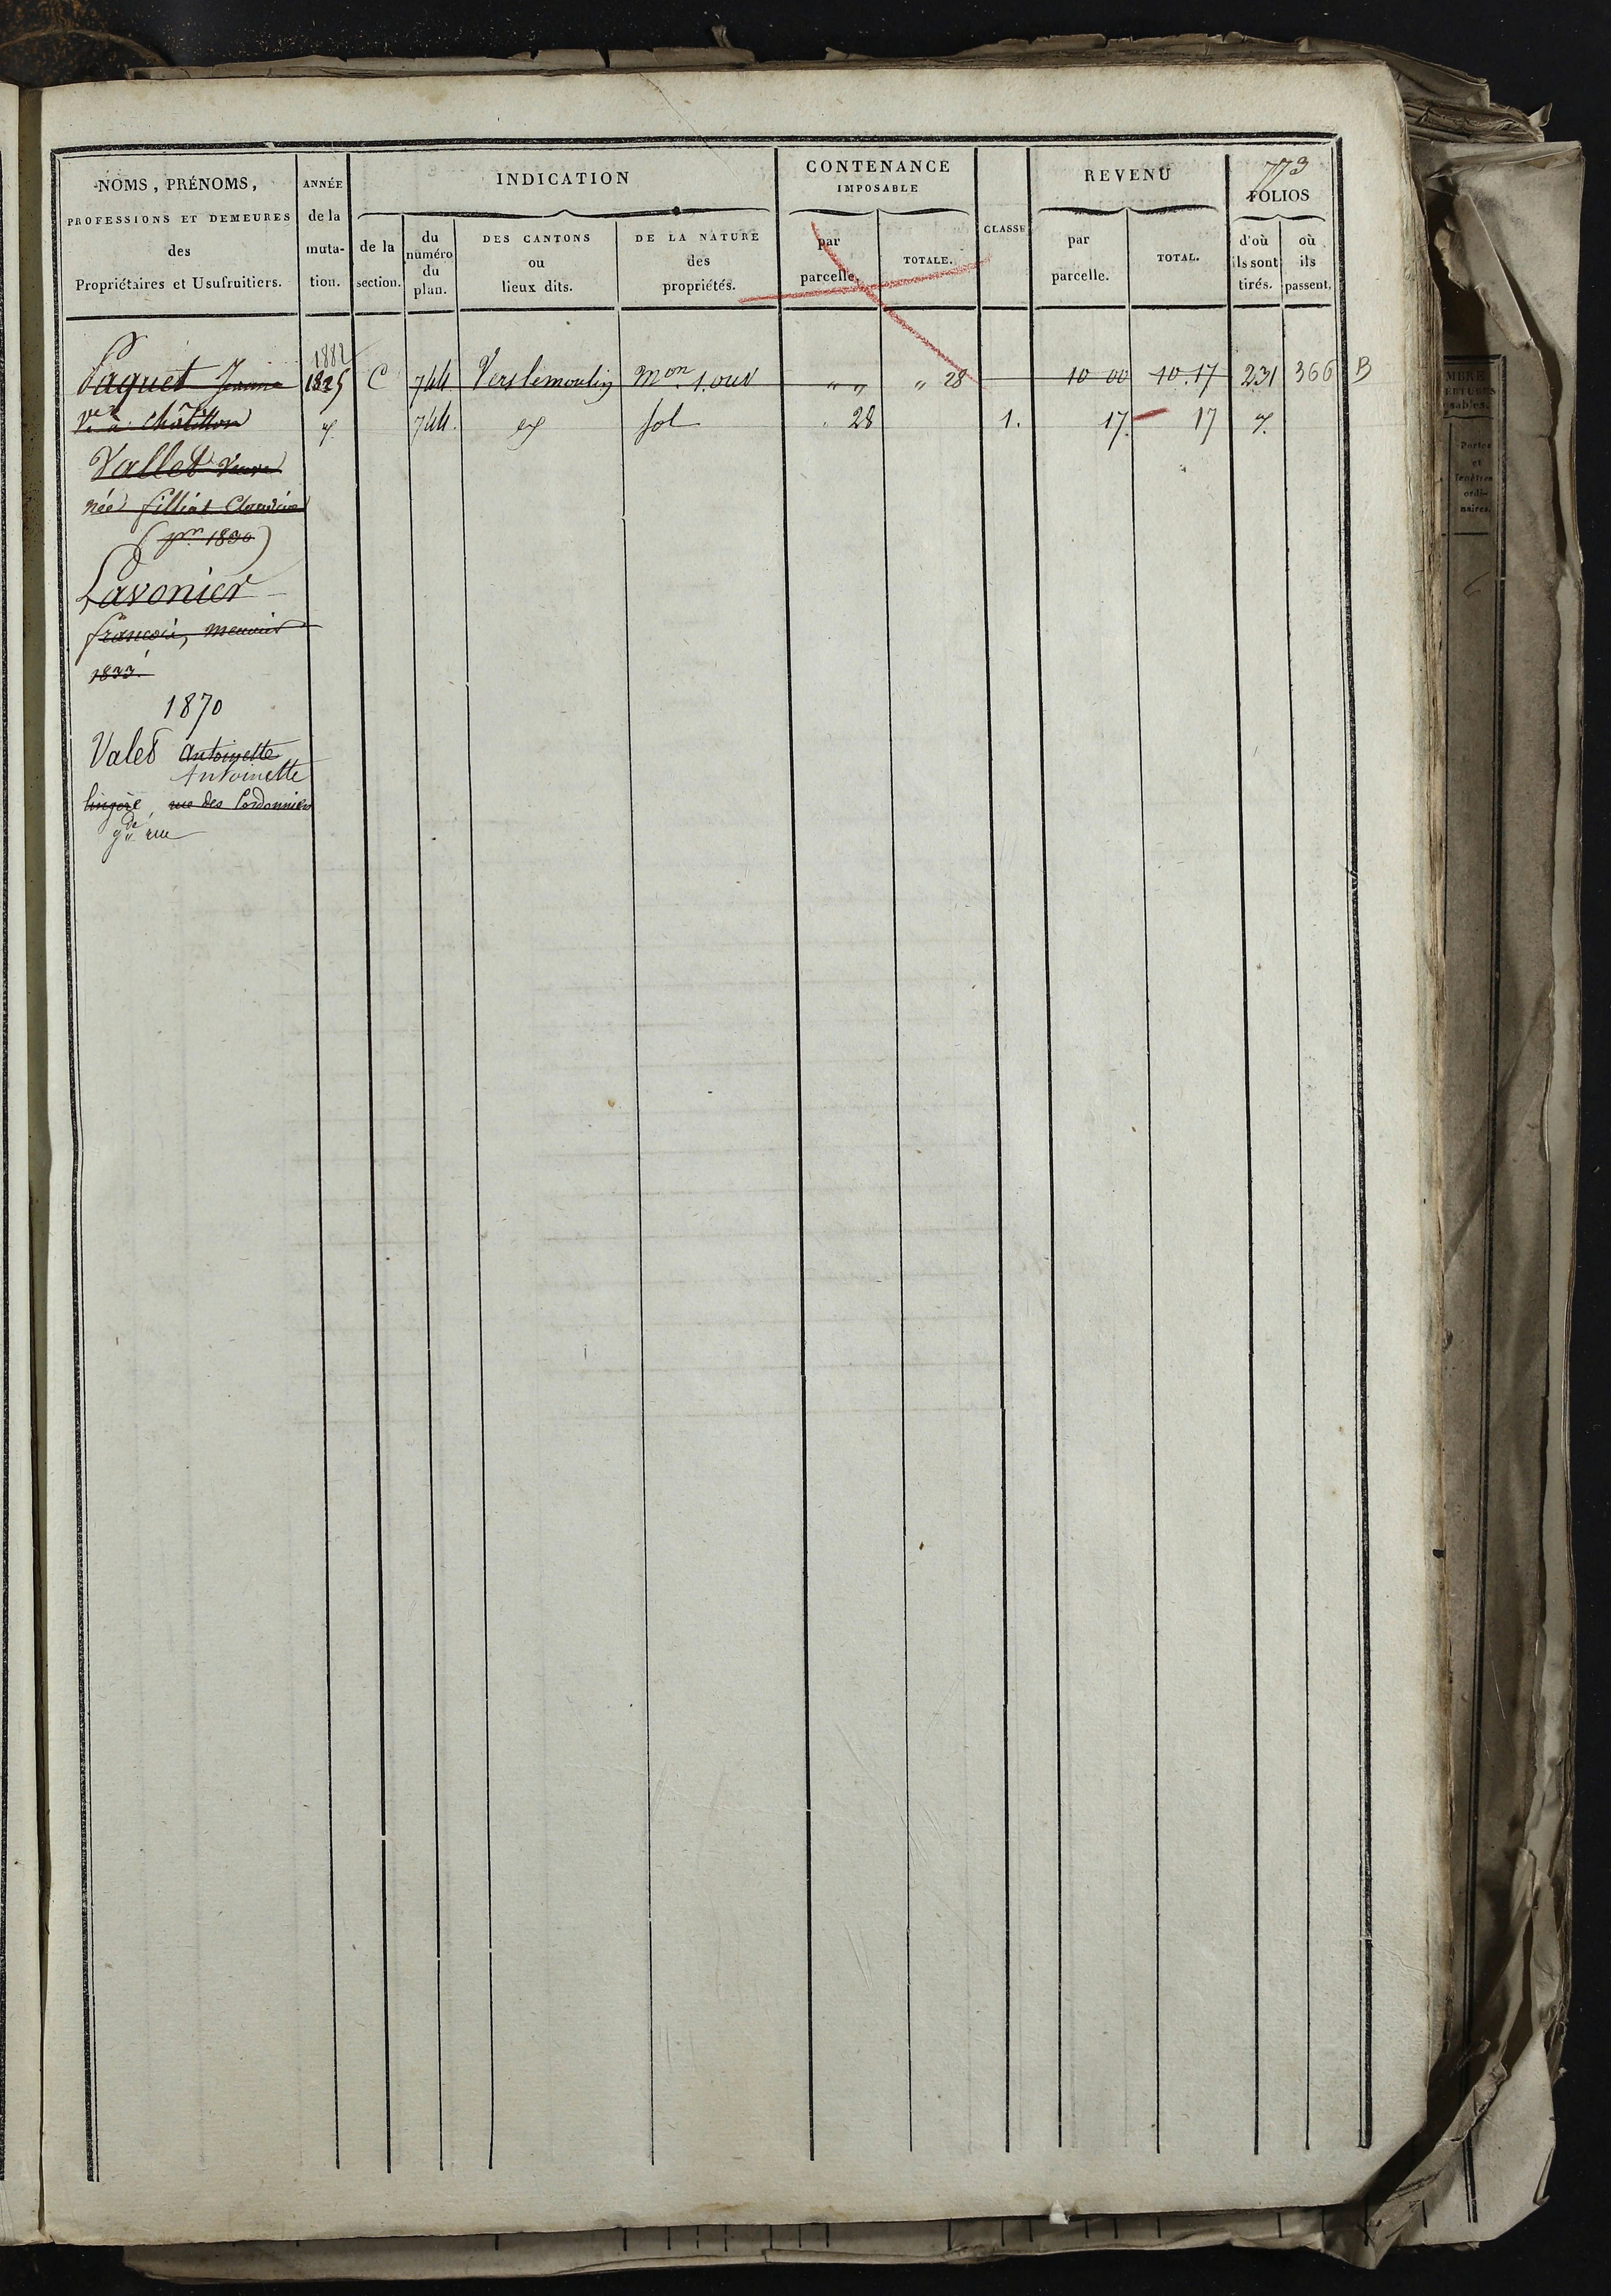 773
NOMS, PRÉNOMS, PROFESSIONS ET DEMEURES des Propriétaires et Usufruitiers.
ANNÉE de la muta- tion.
INDICATION
de la section.
du numéro du plan.
DES CANTONS ou lieux dits.
DE LA NATURE des propriétés.
CONTENANCE IMPOSABLE
par parcelle.
TOTALE.
CLASSE
REVENU
par parcelle.
TOTAL.
FOLIOS
d'où ils sont tirés.
où ils passent.
1882
Paquet Jeanne 1825 C 744 Vers le moulin Mon. 1. ouv " " " 28 10 00 10.17 231 366 B
Ve à Châtillon 744. sol 28 1. 17. 17
Vallet Veuve
née filliat Claudine
(pr. 1830)
Lavonier
françois, meunier
1833.
1870
Valet Antoinette
Antoinette
lingère rue des Cordonniers
gde rue
MBRE
ERTURES
sables.
Portes
et
fenêtres
ordi-
naires.